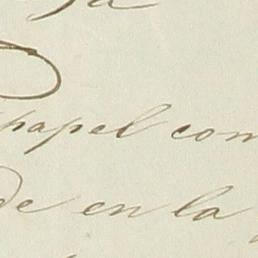 papel com
de en la